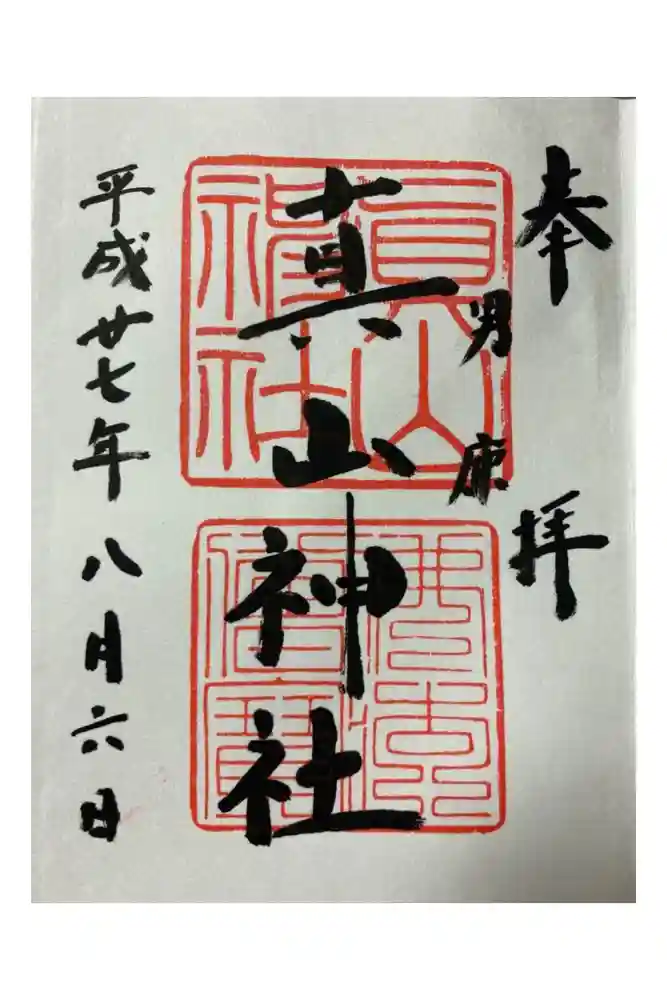 奉拝
男鹿
真山神社
平成廿七年八月六日
真山
神社